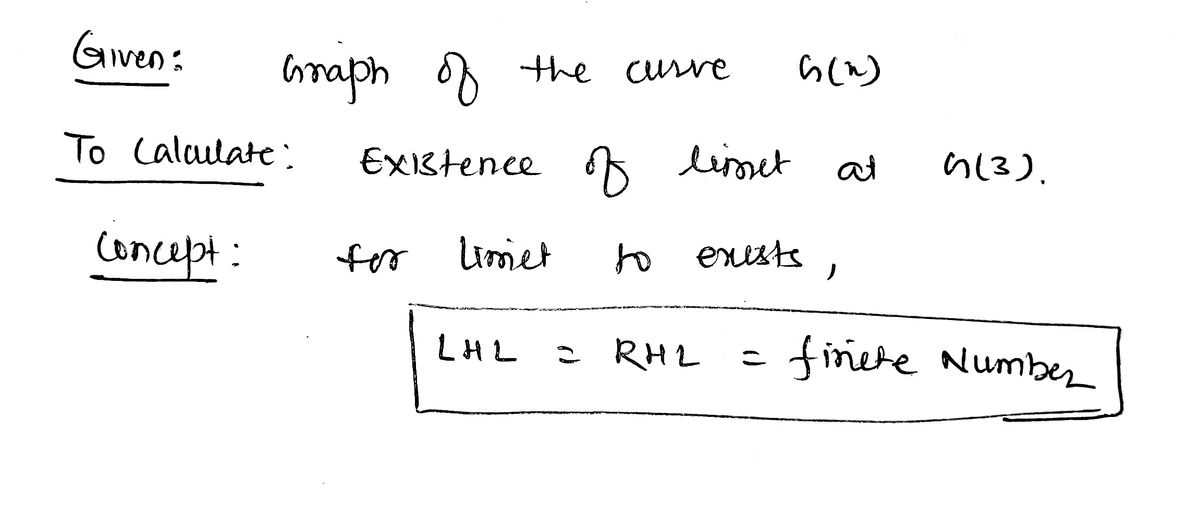 Given: Graph of the curve G(x)
To Calculate: Existence of limit at G(3).
Concept: for limit to exists,
LHL = RHL = finite Number